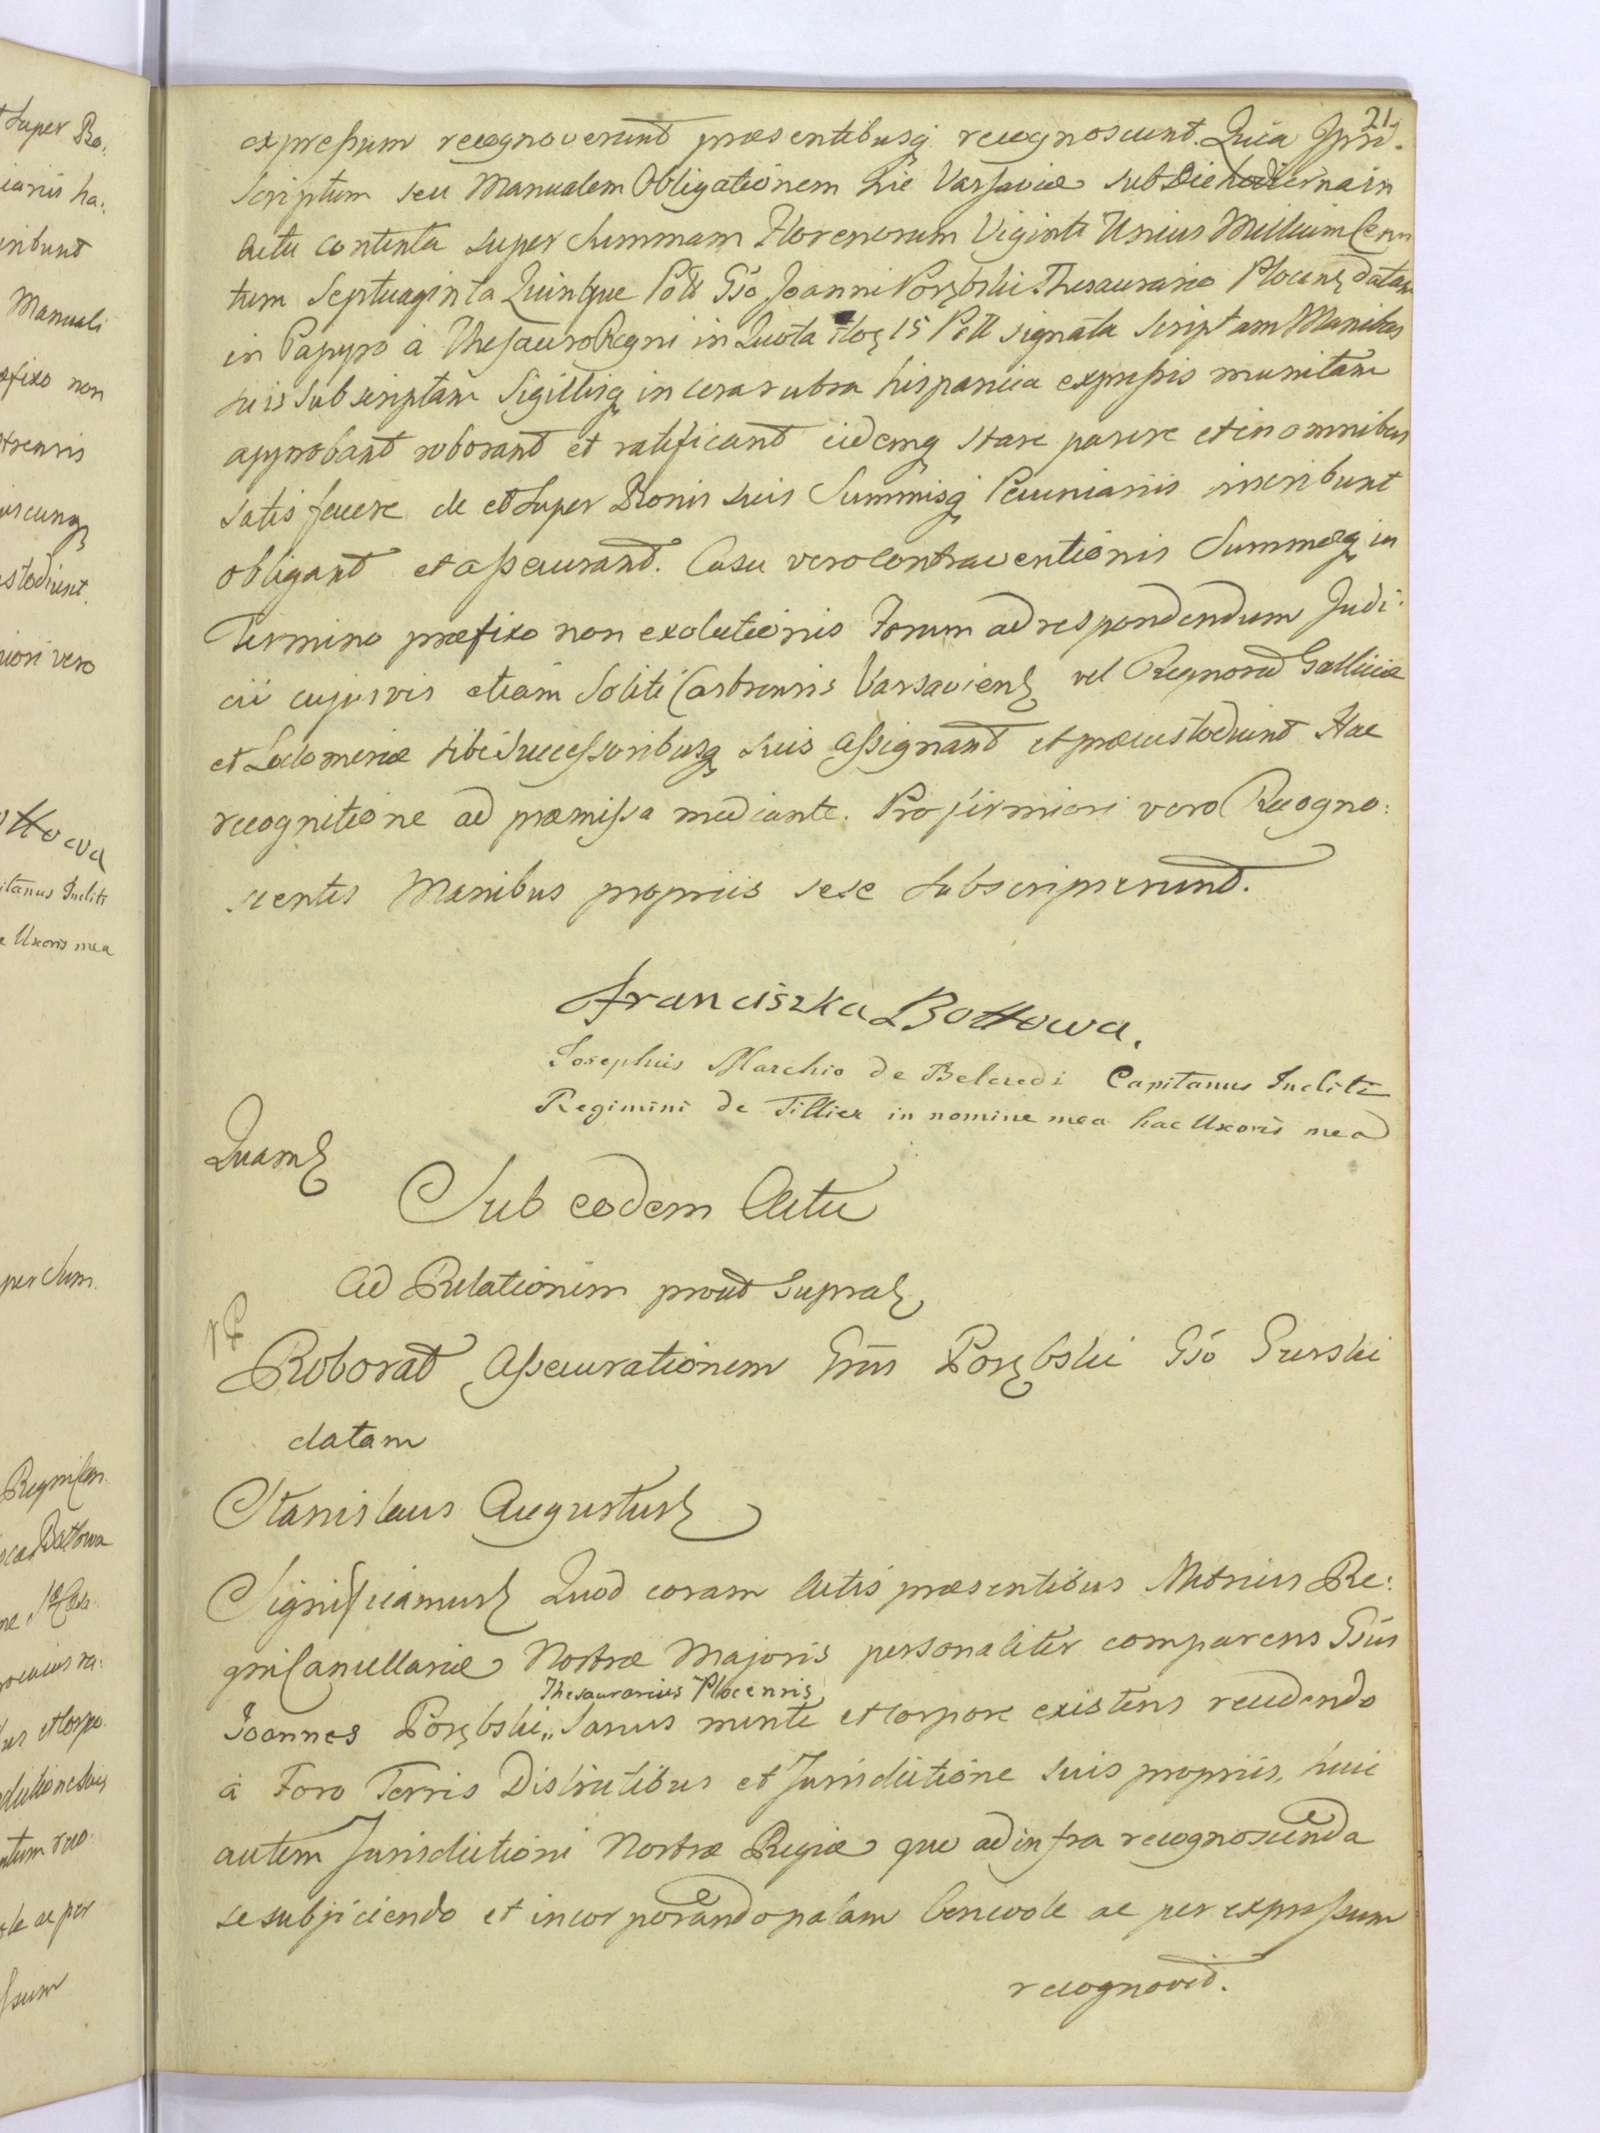 21
expressum recognoverunt praesentibusq recognoscunt. Quia
Scriptum seu Manualem Obligationem hic Varsaviae sub Die hodierna in
Actu contenta super Summam Florenorum Viginti Unius Millium Cen
tum Septuaginta Quinque Poll Gso Joanni Porębski Thesaurario Plocens datam
in Papyro à Thesauro Regni in Quota flor 15 Poll signata Scriptam Manibus
suis subscriptam Sigillisq in cera rubra hispanica expressis munitam
approbant roborant et ratificant eidemq stare parere et in omnibus
satisfacere de et super Bonis suis Summisq Pecuniariis inscribunt
obligant et assecurant. Casu vero contraventionis Summaeq in
Termino praefixo non exolutionis Forum ad respondendum Judi:
cii cujusvis etiam soliti Castrensis Varsaviens vel Regnorum Galliciae
et Lodomeriae sibi Successoribusq suis assignant et praecustodiunt Hac
recognitione ad praemissa mediante. Pro firmiori vero Recogno:
scentes Manibus propriis sese subscripserunt.
Franciszka Bottowa.
Josephus Marchio de Belcredi Capitanus Incliti
Regimini de Tillier in nomine mea hac Uxoris mea
Quam
Sub eodem Actu
Ad Relationem prout supra
Roborat Assecurationem Gsus Porębski Gso Gurski
datam
Stanislaus Augustus
Significamus Quod coram Actis praesentibus Metrices Re:
gni Cancellariae Nostrae Majoris personaliter comparens Gsus
Thesaurarius Plocensis
Joannes Porębski,, Sanus mente et corpore existens recedendo
à Foro Terris Districtibus et Jurisdictione suis propriis, huic
autem Jurisdictioni Nostrae Regiae quo ad infra recognoscenda
se subjiciendo et incorporando palam benevole ac per expressum
recognovit.